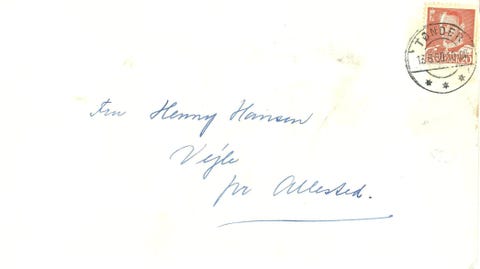 TØNDER
Fru Henny Hansen
Vejle
pr Allested.